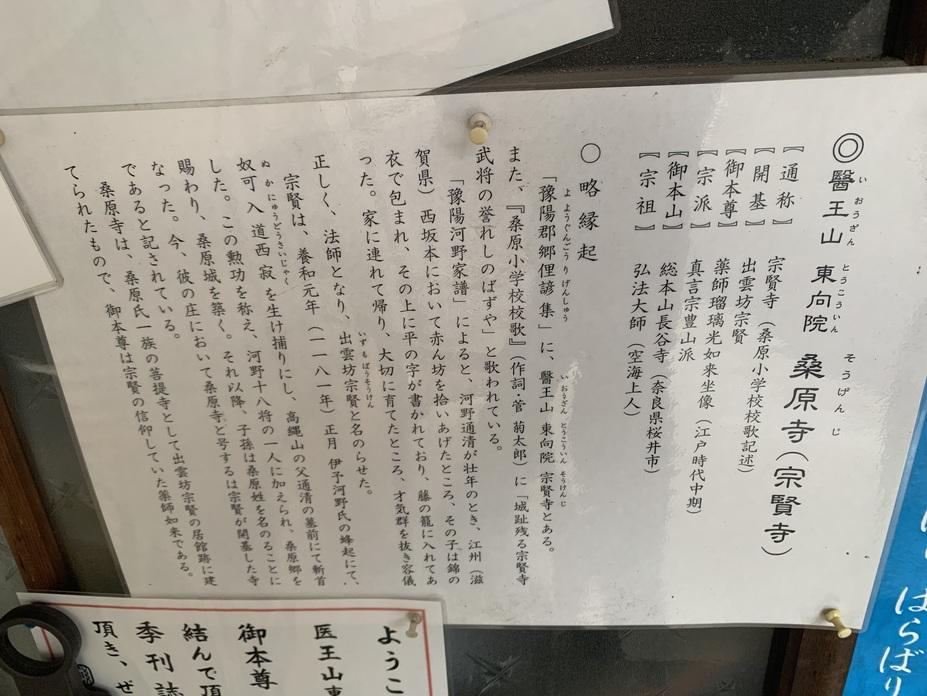 ◎醫王山 東向院 桑原寺(宗賢寺)
いおうざん とうこういん そうげんじ
【通称】 宗賢寺(桑原小学校校歌記述)
【開基】 出雲坊宗賢
【御本尊】 薬師瑠璃光如来坐像(江戸時代中期)
【宗派】 真言宗豊山派
【御本山】 総本山長谷寺(奈良県桜井市)
【宗祖】 弘法大師(空海上人)
○略縁起
「豫陽郡郷俚諺集」に、醫王山 東向院 宗賢寺とある。
よようぐんごうりげんしゅう いおうざん とうこういん そうけんじ
また、『桑原小学校校歌』(作詞・菅 菊太郎)に「城趾残る宗賢寺
武将の誉れしのばずや」と歌われている。
「豫陽河野家譜」によると、河野通清が壮年のとき、江州(滋
賀県)西坂本において赤ん坊を拾いあげたところ、その子は錦の
衣で包まれ、その上に平の字が書かれており、藤の籠に入れてあ
った。家に連れて帰り、大切に育てたところ、才気群を抜き容儀
正しく、法師となり、出雲坊宗賢と名のらせた。
いずもぼうそうけん
宗賢は、養和元年(一一八一年)正月 伊予河野氏の蜂起にて、
奴可入道西寂を生け捕りにし、高縄山の父通清の墓前にて斬首
ぬかにゅうどうさいじゃく
した。この勲功を称え、河野十八将の一人に加えられ、桑原郷を
賜わり、桑原城を築く。それ以降、子孫は桑原姓を名のることに
なった。今、彼の庄において桑原寺と号するは宗賢が開基した寺
であると記されている。
桑原寺は、桑原氏一族の菩提寺として出雲坊宗賢の居館跡に建
てられたもので、御本尊は宗賢の信仰していた薬師如来である。
ようこ
医王山東
御本尊
結んで頂
季刊誌
頂き、ぜ
はらばり